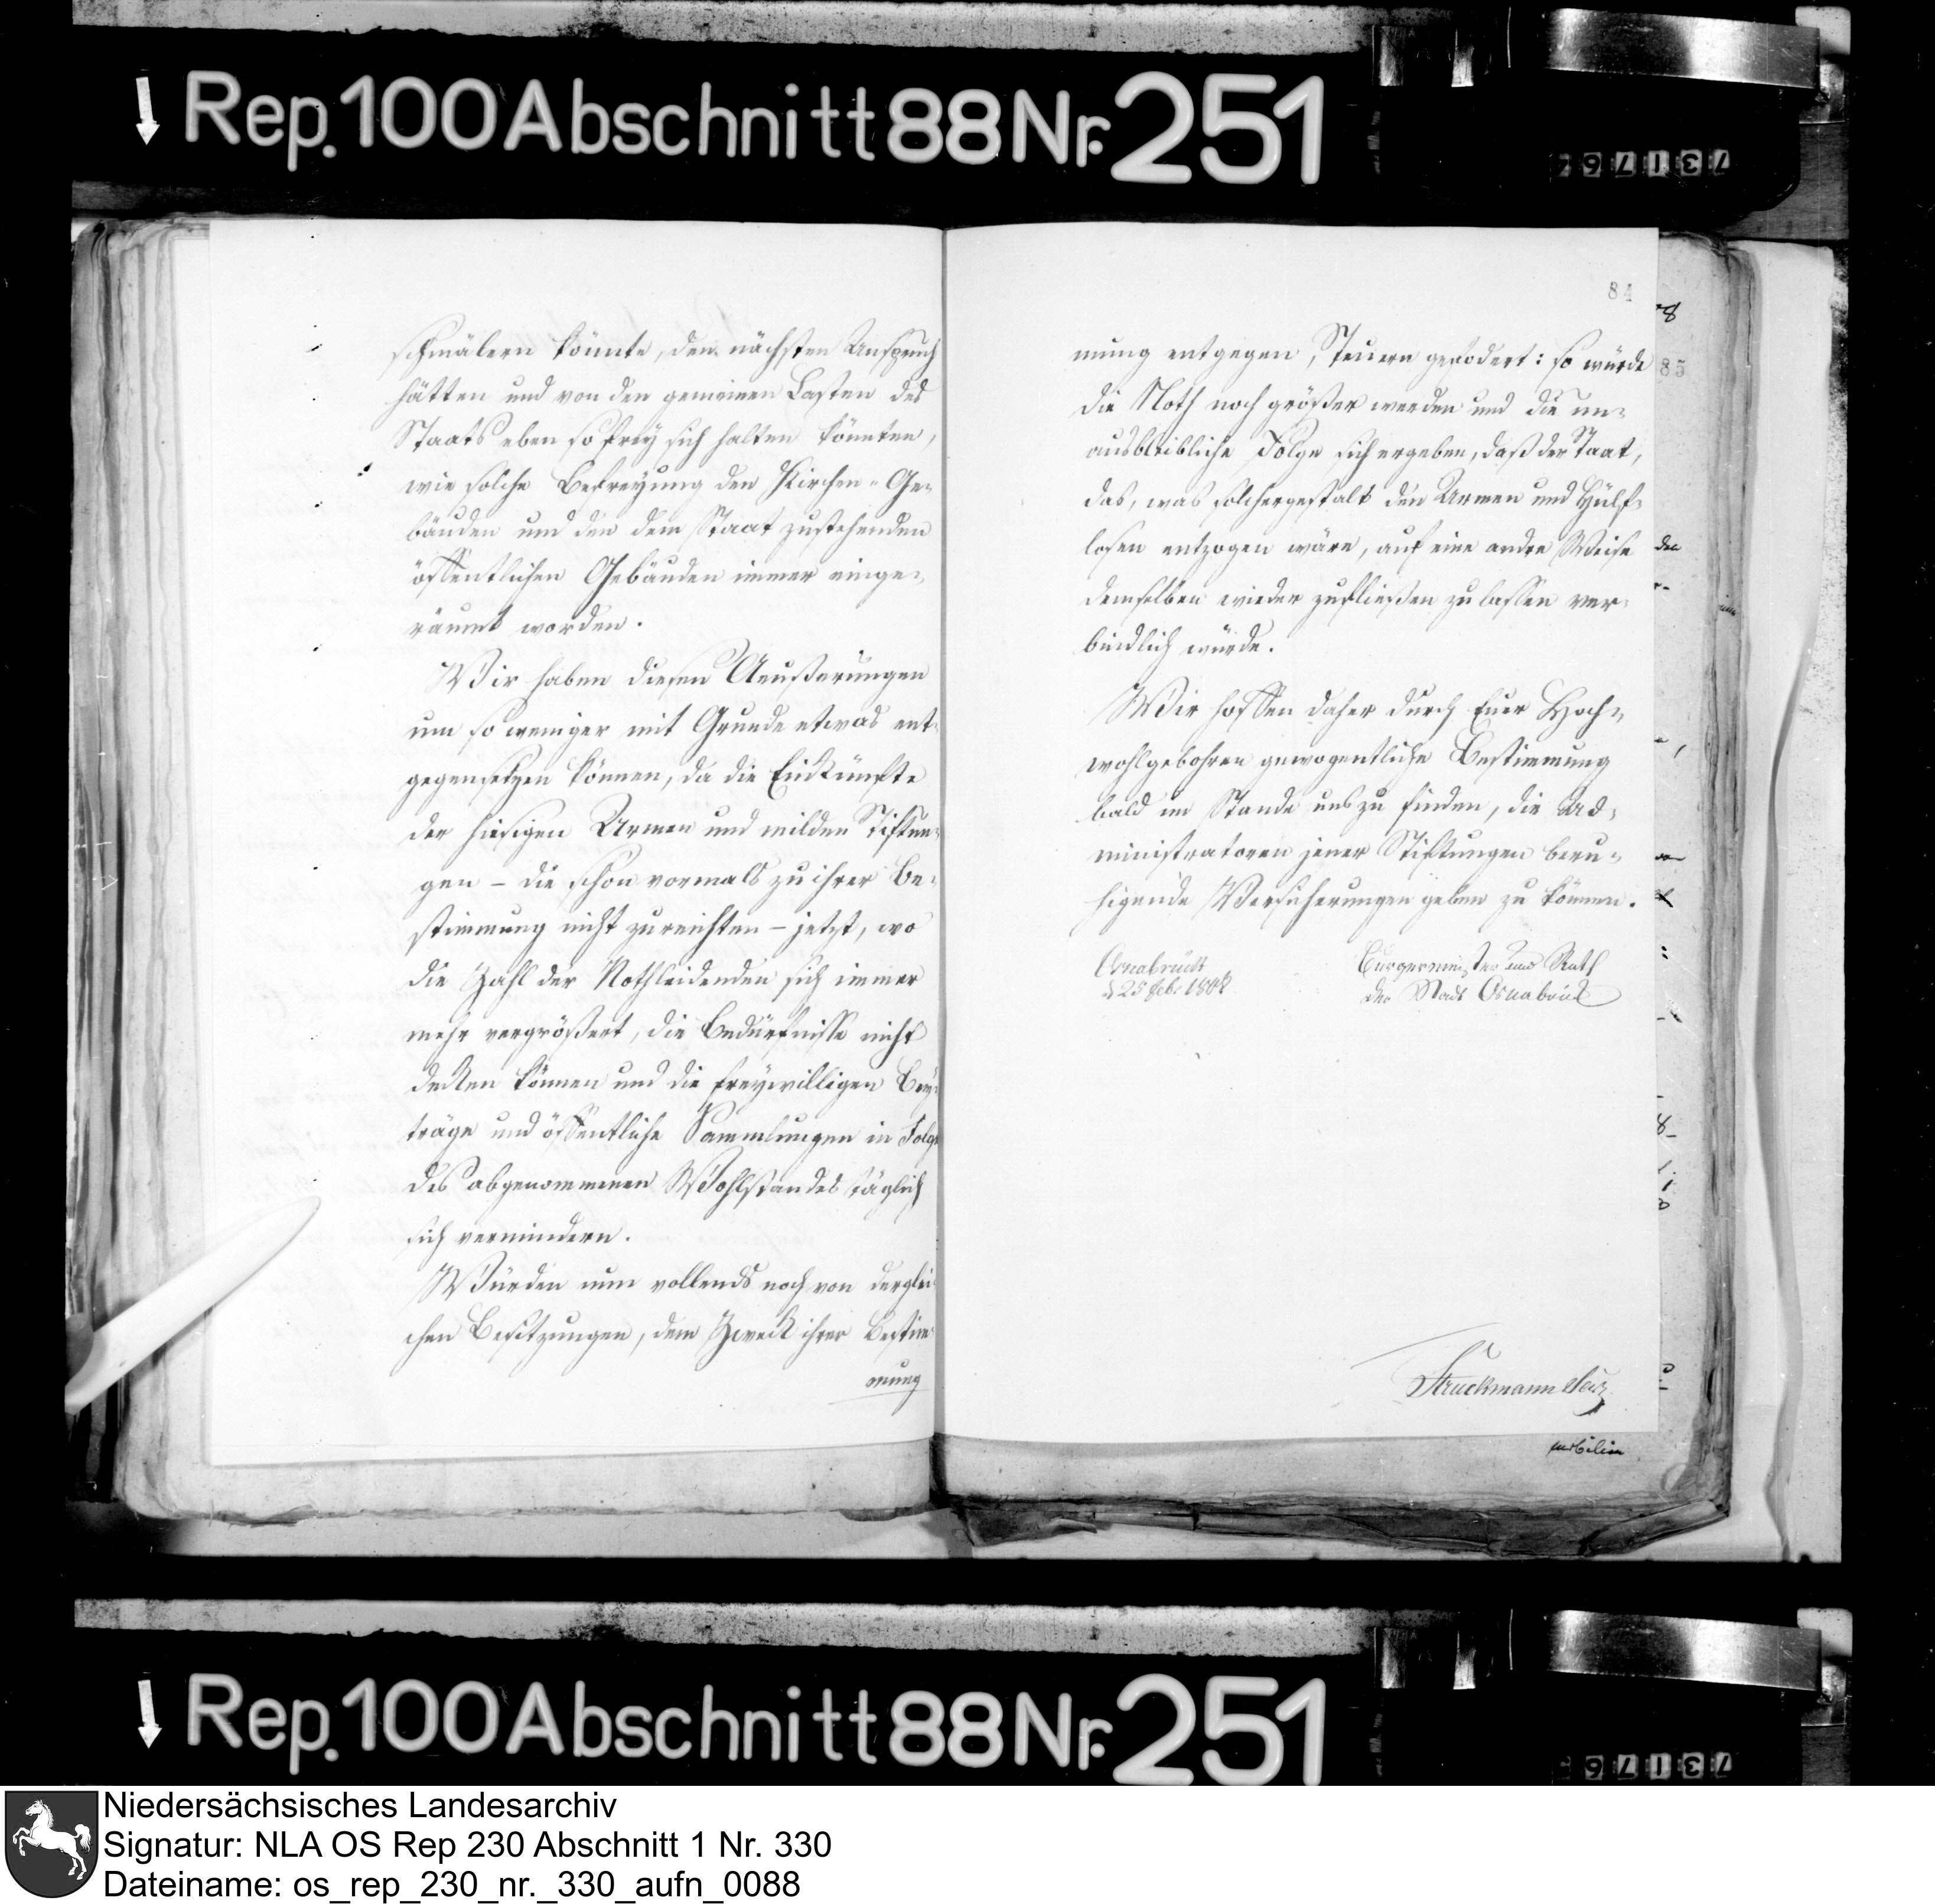 Rep. 100 Abschnitt 88 Nr. 251
73176
schmälern könnte, den nächsten Anspruch
hätten und von den gemeinen Lasten des
Staats eben so frey sich halten könnten,
wie solche Befreyung den Kirchen-Ge-
bäuden und den dem Staat zustehenden
öffentlichen Gebäuden immer einge-
räumt worden.
Wir haben diesen Aeußerungen
um so weniger mit Grunde etwas ent-
gegensetzen können, da die Einkünfte
der hiesigen Armen und milden Stiftun-
gen - die schon vormals zu ihrer Be-
stimmung nicht zureichten - jetzt, wo
die Zahl der Nothleidenden sich immer
mehr vergrößert, die Bedürfnisse nicht
decken können und die freywilligen Bey-
träge und öffentliche Sammlungen in Folge
des abgenommenen Wohlstandes täglich
sich vermindern.
Würden nun vollends noch von derglei-
chen Besitzungen, dem Zweck ihrer Bestim-
mung
84
mung entgegen, Steuern gefodert: so würde
die Noth noch größer werden und die un-
ausbleibliche Folge sich ergeben, daß der Staat,
das, was solchergestalt den Armen und Hülf-
losen entzogen wäre, auf eine andre Weise
demselben wieder zufließen zu lassen ver-
bindlich würde.
Wir hoffen daher durch Euer Hoch-
wohlgebohren gewogentliche Bestimmung
bald im Stande uns zu finden, die Ad-
ministratoren jener Stiftungen beru-
higende Versicherungen geben zu können.
Osnabrück
d 25 Feb. 1808
Burgermeister und Rath
der Stadt Osnabrück
Struckmann Secr
85
Rep. 100 Abschnitt 88 Nr. 251
73176
Niedersächsisches Landesarchiv
Signatur: NLA OS Rep 230 Abschnitt 1 Nr. 330
Dateiname: os_rep_230_nr._330_aufn_0088